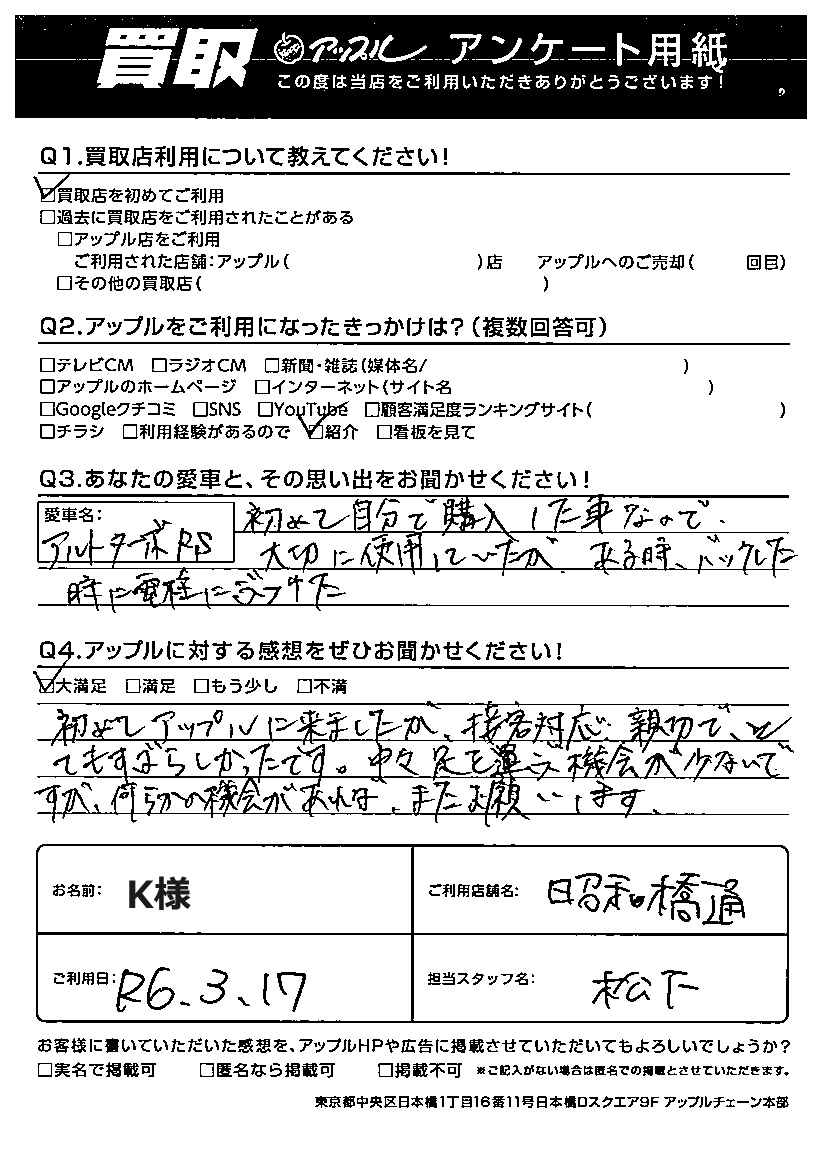 買取 アップル アンケート用紙
この度は当店をご利用いただきありがとうございます!
Q1.買取店利用について教えてください!
☑買取店を初めてご利用
□過去に買取店をご利用されたことがある
□アップル店をご利用
ご利用された店舗:アップル( )店 アップルへのご売却( 回目)
□その他の買取店( )
Q2.アップルをご利用になったきっかけは?(複数回答可)
□テレビCM □ラジオCM □新聞・雑誌(媒体名/ )
□アップルのホームページ □インターネット(サイト名 )
□Googleクチコミ □SNS □YouTube □顧客満足度ランキングサイト( )
□チラシ □利用経験があるので ☑紹介 □看板を見て
Q3.あなたの愛車と、その思い出をお聞かせください!
愛車名:
アルトターボRS
初めて自分で購入した車なので、
大切に使用していたが、ある時、バックした
時に電柱にぶつけた
Q4.アップルに対する感想をぜひお聞かせください!
☑大満足 □満足 □もう少し □不満
初めてアップルに来ましたが、接客対応、親切で、と
てもすばらしかったです。中々足を運ぶ機会が少ないで
すが、何らかの機会があれば、またお願いします。
お名前: K様 ご利用店舗名: 昭和橋通
ご利用日: R6.3.17 担当スタッフ名: 松下
お客様に書いていただいた感想を、アップルHPや広告に掲載させていただいてもよろしいでしょうか?
□実名で掲載可 □匿名なら掲載可 □掲載不可 ※ご記入がない場合は匿名での掲載とさせていただきます。
東京都中央区日本橋1丁目16番11号日本橋Dスクエア9F アップルチェーン本部